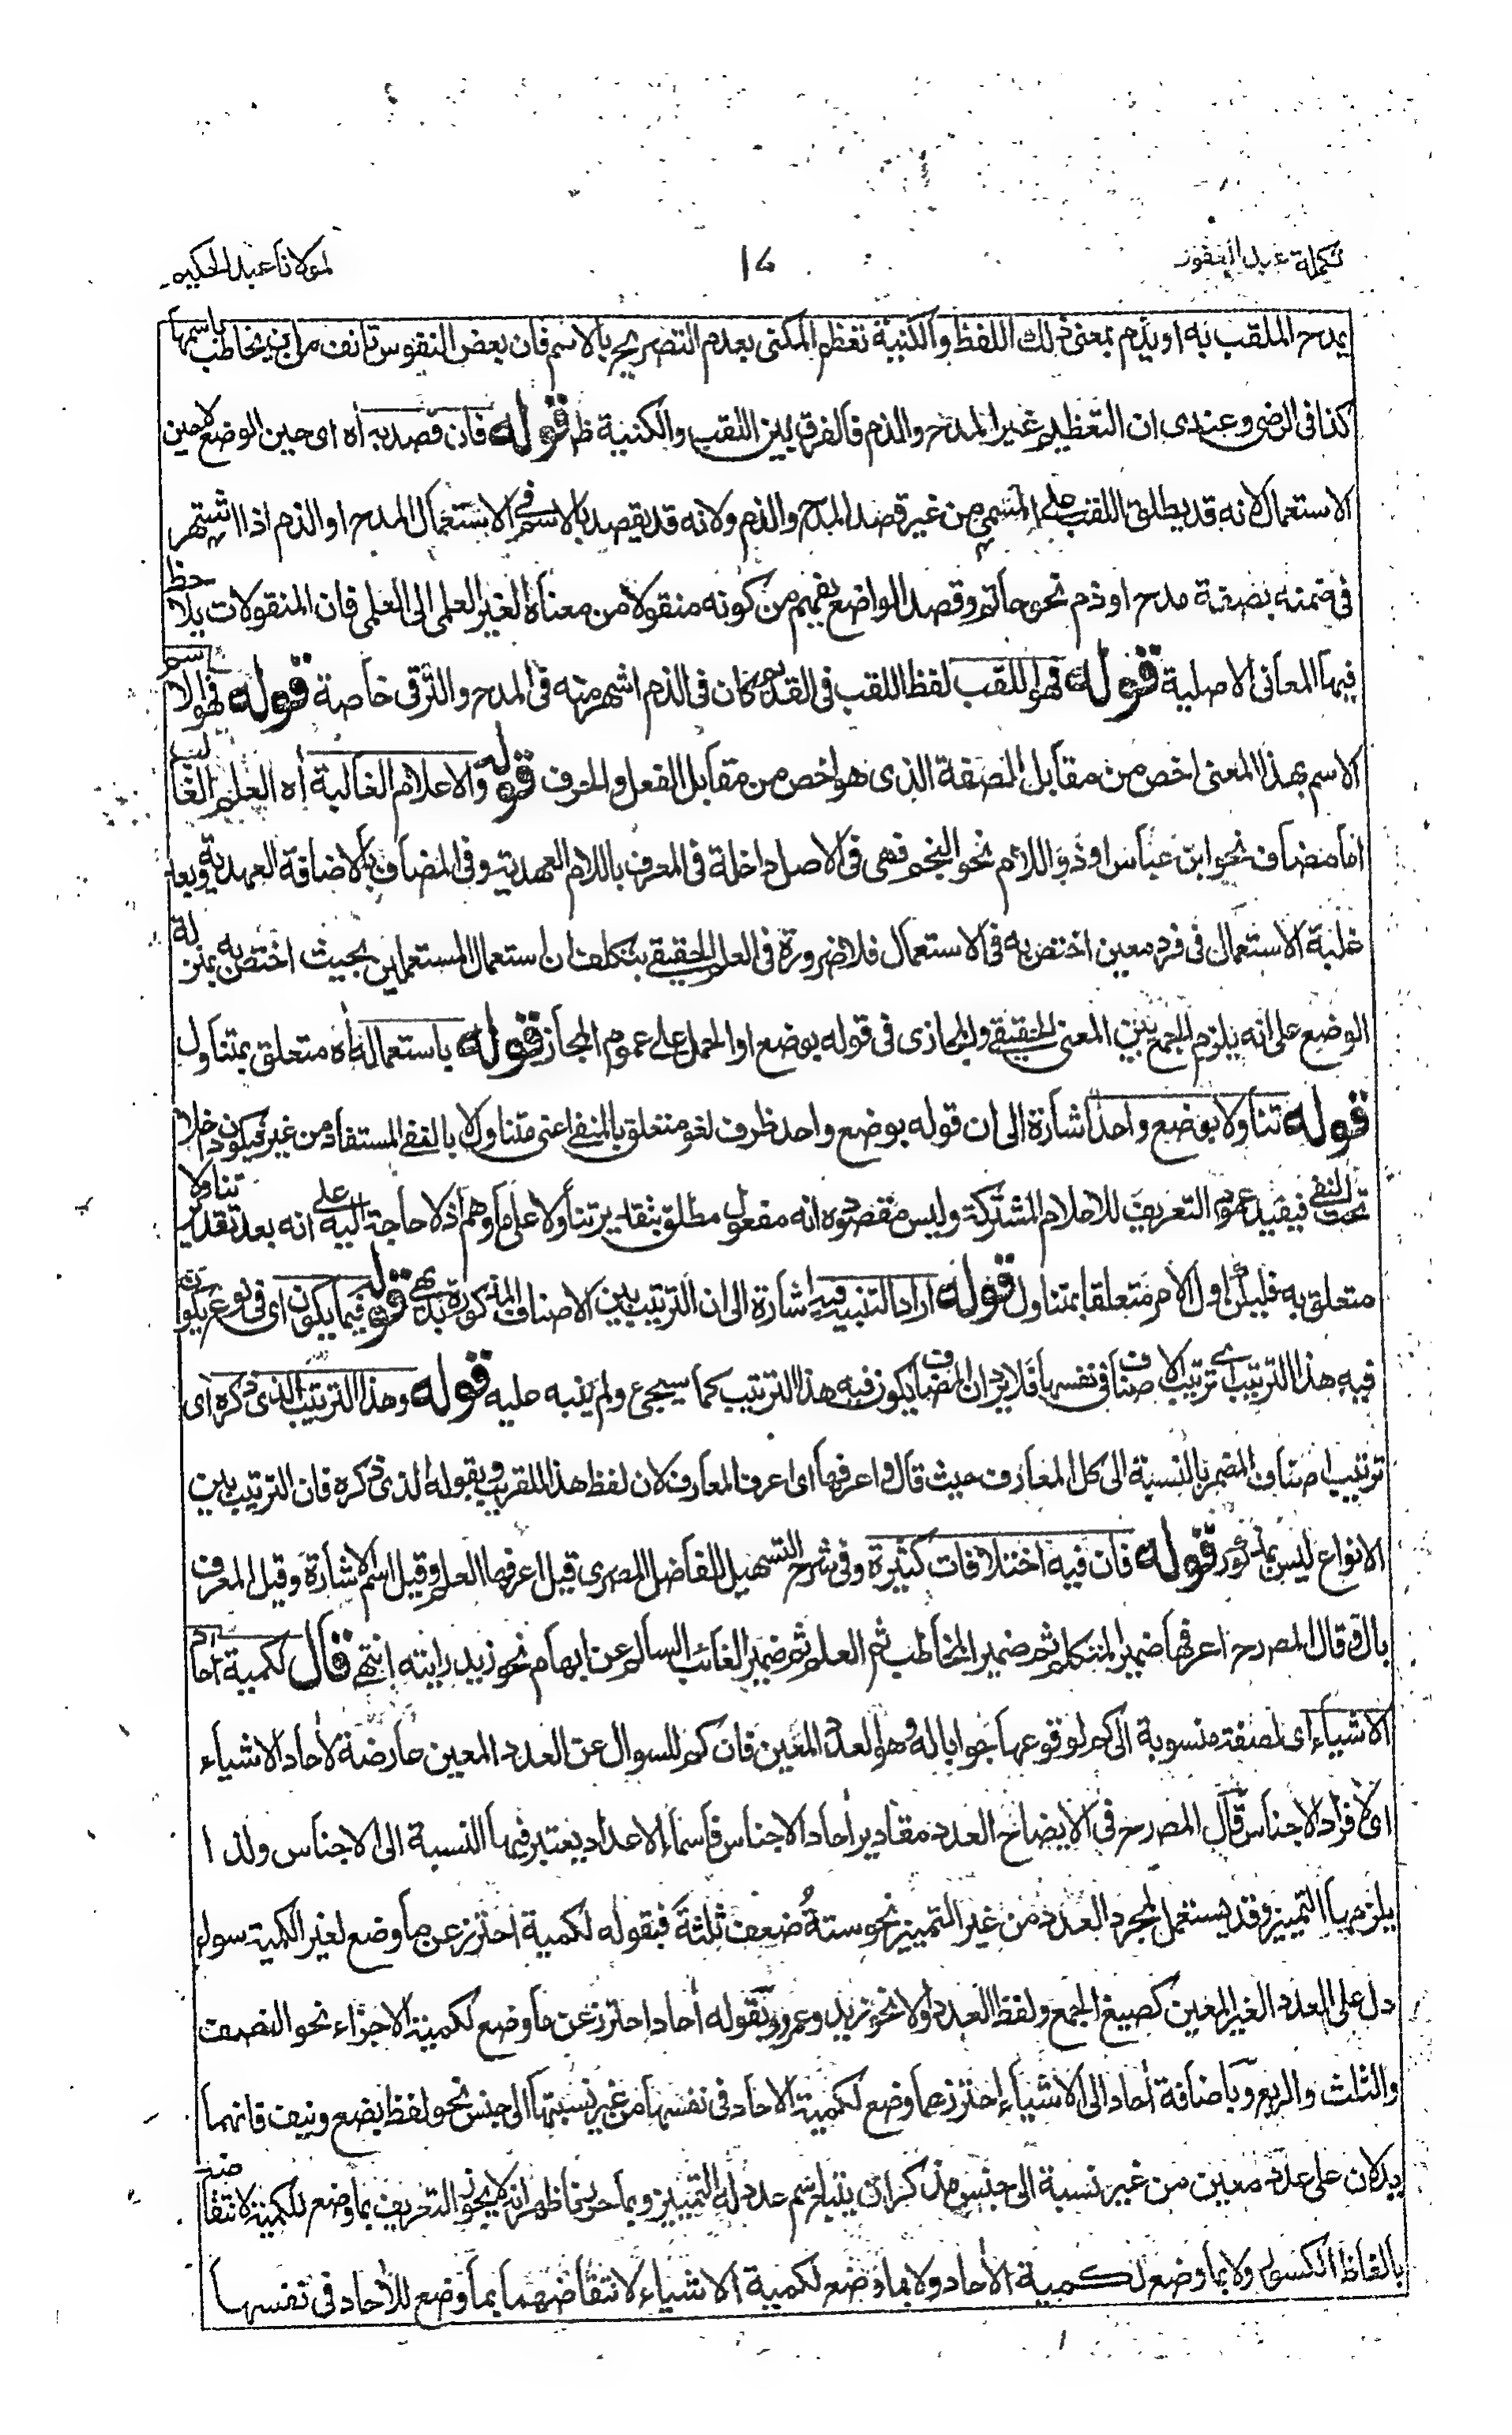 تكملة عبد الغفور
١٤
لمولانا عبد الحكيم
يمدح الملقب به او يذم بمعنى ذلك اللفظ والكنية تعظم المكنى بعدم التصريح بالاسم فان بعض النفوس تأنف من ان يخاطب باسمها
كذا فى الرضى وعندى ان التعظيم غير المدح والذم فالفرق بين اللقب والكنية ظ قوله فان قصد به اه اى حين الوضع لا حين
الاستعمال لانه قد يطلق اللقب على المسمى من غير قصد المدح والذم ولانه قد يقصد بالاسم فى الاستعمال المدح او الذم اذا اشتهر
فى ضمنه بصفة مدح او ذم نحو حاتم وقصد الواضع يفهم من كونه منقولا من معناه الغير العلمى الى العلمى فان المنقولات يلاحظ
فيها المعانى الاصلية قوله فهو اللقب لفظ اللقب فى القديم كان فى الذم اشهر منه فى المدح والترقى خاصة قوله فهو الاسم
الاسم بهذا المعنى اخص من مقابل الصفة الذى هو اخص من مقابل الفعل والحرف قوله والاعلام الغالبة اه العلم الغالب
اما مضاف نحو ابن عباس او ذو اللام نحو النجم فهى فى الاصل داخلة فى المعرف باللام العهدية وفى المضاف بالاضافة العهدية وبعد
غلبة الاستعمال فى فرد معين اختص به فى الاستعمال فلا ضرورة فى العلم الحقيقى بتكلف ان استعمال المستعملين بحيث اختص به بمنزلة
الوضع على انه يلزم الجمع بين المعنى الحقيقى والمجازى فى قوله بوضع او الحمل على عموم المجاز قوله باستعماله اه متعلق بمتناول
قوله تناولا بوضع واحد اشارة الى ان قوله بوضع واحد ظرف لغو متعلق بالمنفى اعنى متناولا لا بالنفى المستفاد من غير فيكون داخلا
تحت النفى فيفيد عموم التعريف للاعلام المشتركة وليس مقصوده انه مفعول مطلق بتقدير تناولا على ما وهم اذ لا حاجة اليه على انه بعد تقدير تناولا
متعلق به فليكن اول الامر متعلقا بمتناول قوله اراد التنبيه اشارة الى ان الترتيب بين الاصناف المذكورة بديهى قوله فيما يكون اى فى نوع يكون
فيه هذا الترتيب اى ترتيب الاصناف فى نفسها فلا يرد ان المضاف يكون فيه هذا الترتيب كما سيجئ ولم ينبه عليه قوله وهذا الترتيب الذى ذكره اى
ترتيب اصناف المضمر بالنسبة الى كل المعارف حيث قال واعرفها اى اعرف المعارف لان لفظ هذا للقريب وبقوله الذى ذكره فان الترتيب بين
الانواع ليس بمذكور قوله فان فيه اختلافات كثيرة وفى شرح التسهيل للفاضل المصرى قيل اعرفها العلم وقيل اسم الاشارة وقيل المعرف
بال وقال المصرح اعرفها ضمير المتكلم ثم ضمير المخاطب ثم العلم ثم ضمير الغائب السالم عن ابهام نحو زيد رايته انتهى قال لكمية احاد
الاشياء اى لصفة منسوبة الى كم لوقوعها جوابا له وهو العدد المعين فان كم للسوال عن العدد المعين عارضة لآحاد الاشياء
اى لافراد الاجناس قال المصرح فى الايضاح العدد مقادير احاد الاجناس فاسماء الاعداد يعتبر فيها النسبة الى الاجناس ولذا
يلزمها التمييز وقد يستعمل لمجرد العدد من غير التمييز نحو ستة ضعف ثلثة فبقوله لكمية احترز عن ما وضع لغير الكمية سواء
دل على العدد الغير المعين كصيغ الجمع ولفظ العدد اولا نحو زيد وعمرو وبقوله احاد احترز عن ما وضع لكمية الاجزاء نحو النصف
والثلث والربع وباضافة احاد الى الاشياء احترز عما وضع لكمية الاحاد فى نفسها من غير نسبتها الى جنس نحو لفظ بضع ونيف فانهما
يدلان على عدد معين من غير نسبة الى جنس مذكر ان يتنا اسم عدد له التمييز وبما حررنا ظهر انه لا يجوز التعريف بما وضع للكمية لانتقاضه
بالفاظ الكسور ولا بما وضع لكمية الاحاد ولا بما وضع لكمية الاشياء لانتقاضهما بما وضع للاحاد فى نفسها